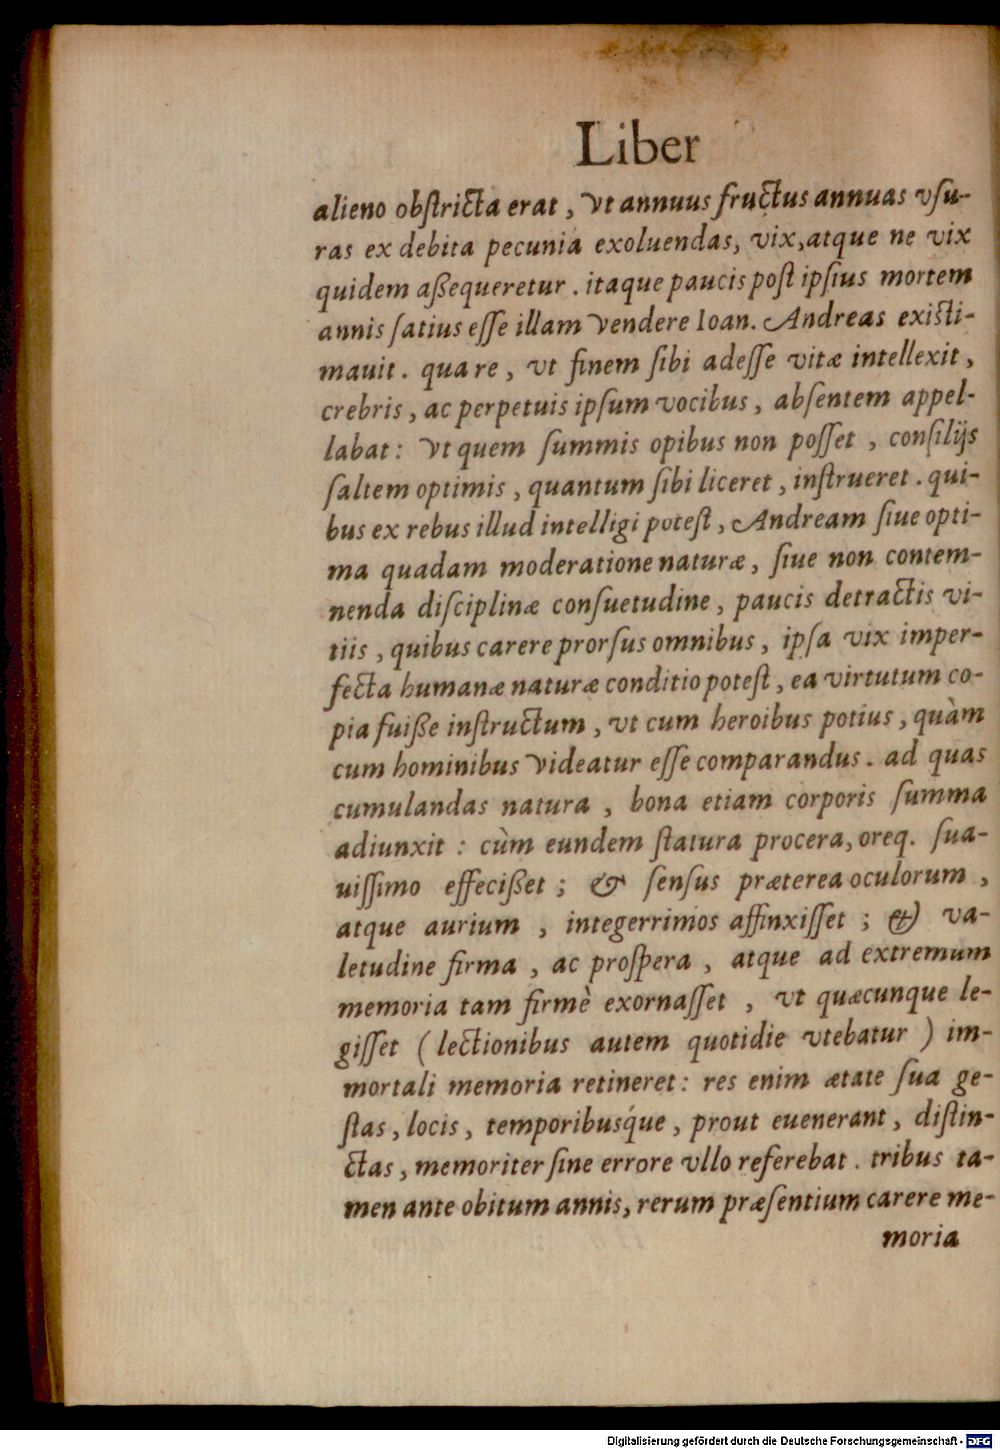 Liber
alieno obſtricta erat, vt annuus fructus annuas vſu-
ras ex debita pecunia exoluendas, vix, atque ne vix
quidem aßequeretur. itaque paucis poſt ipſius mortem
annis ſatius eſſe illam vendere Ioan. Andreas exiſti-
mauit. quare, vt finem ſibi adeſſe vitæ intellexit,
crebris, ac perpetuis ipſum vocibus, abſentem appel-
labat: vt quem ſummis opibus non poſſet, conſilijs
ſaltem optimis, quantum ſibi liceret, inſtrueret. qui-
bus ex rebus illud intelligi poteſt, Andream ſiue opti-
ma quadam moderatione naturæ, ſiue non contem-
nenda diſciplinæ conſuetudine, paucis detractis vi-
tiis, quibus carere prorſus omnibus, ipſa vix imper-
fecta humanæ naturæ conditio poteſt, ea virtutum co-
pia fuiße inſtructum, vt cum heroibus potius, quàm
cum hominibus videatur eſſe comparandus. ad quas
cumulandas natura, bona etiam corporis ſumma
adiunxit: cùm eundem ſtatura procera, oreq. ſua-
uiſſimo effecißet; & ſenſus præterea oculorum,
atque aurium, integerrimos affinxiſſet; & va-
letudine firma, ac proſpera, atque ad extremum
memoria tam firmè exornaſſet, vt quæcunque le-
giſſet (lectionibus autem quotidie vtebatur) im-
mortali memoria retineret: res enim ætate ſua ge-
ſtas, locis, temporibusq́ue, prout euenerant, diſtin-
ctas, memoriter ſine errore vllo referebat. tribus ta-
men ante obitum annis, rerum præſentium carere me-
moria
Digitalisierung gefördert durch die Deutsche Forschungsgemeinschaft - DFG